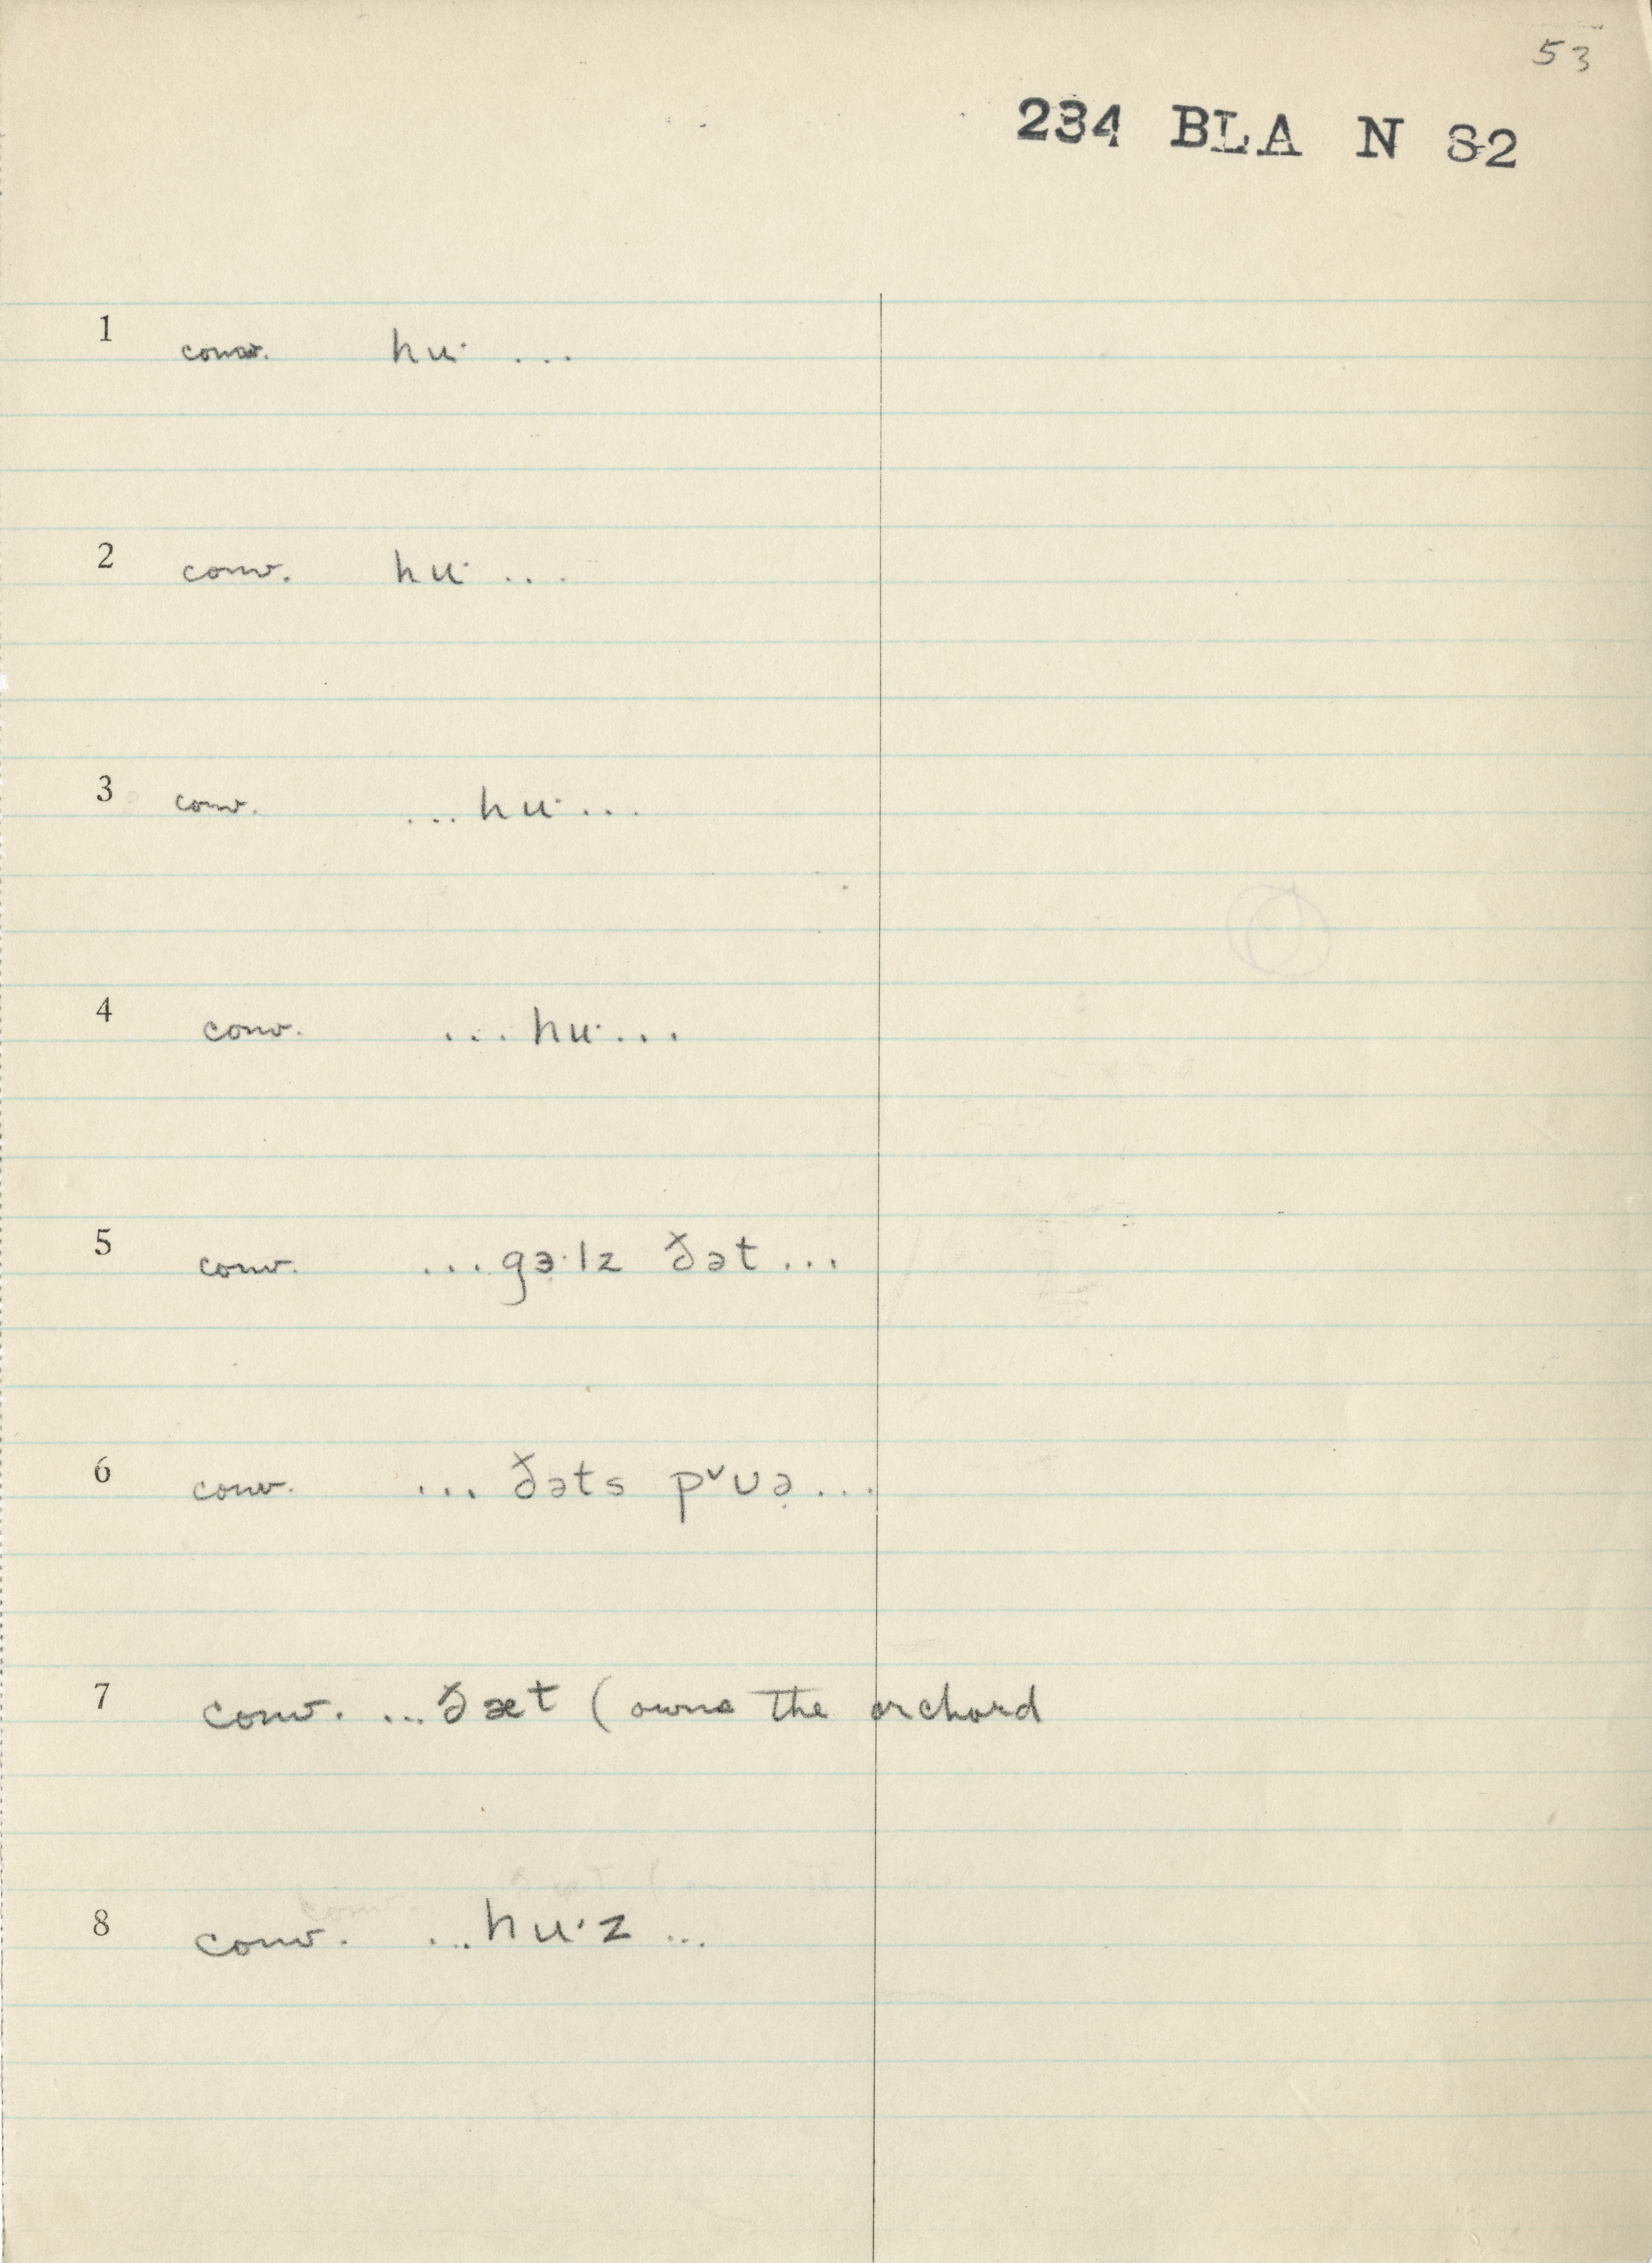 53
234 BLA N S2
1 conv. hu· ...
2 conv. hu· ...
3 conv. ...hu·...
4 conv. ...hu·...
5 conv. ...gɜ·lz ðət...
6 conv. ... ðəts pᵛʊə̣...
7 conv. ...ðæt (owns the orchard
8 conv. ...hu·z ...